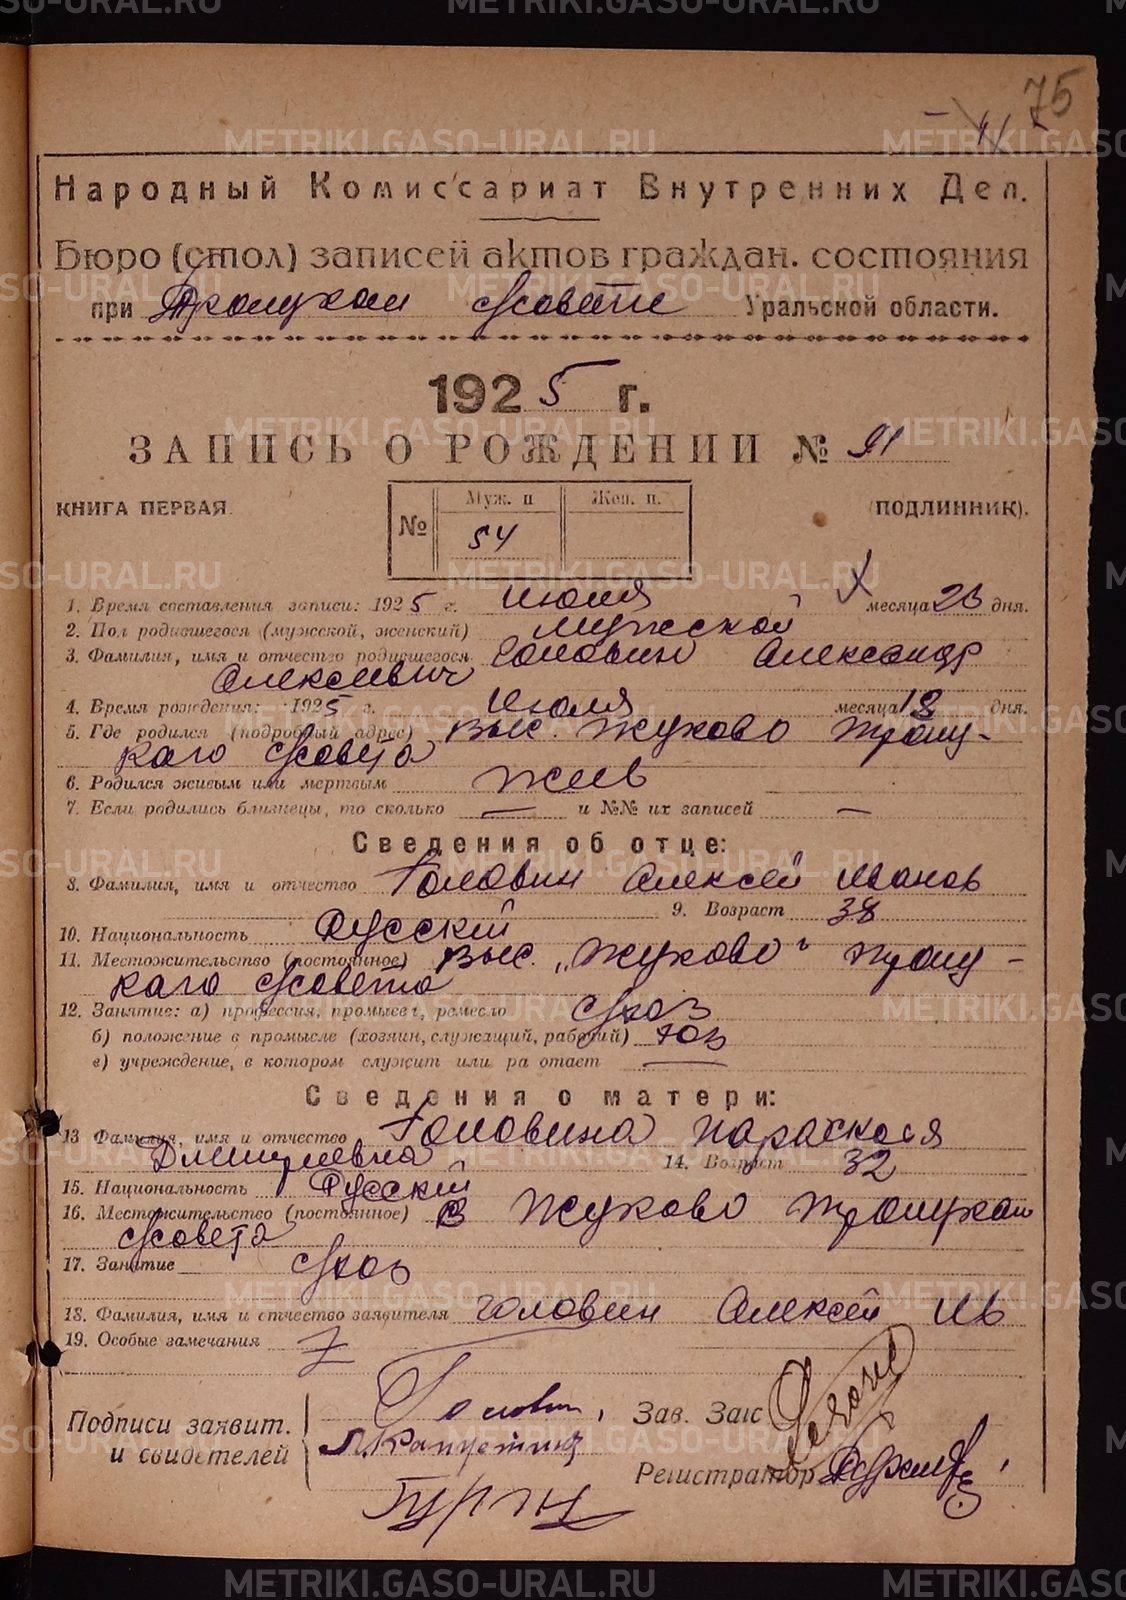 METRIKI.GASO-URAL.RU
75
Народный Комиссариат Внутренних Дел.
Бюро (стол) записей актов граждан. состояния
при Троицком с/совете Уральской области.
1925 г.
ЗАПИСЬ О РОЖДЕНИИ № 91
КНИГА ПЕРВАЯ. (ПОДЛИННИК).
№ Муж. п Жен. п.
54
1. Время составления записи: 1925 г. Июля месяца 26 дня.
2. Пол родившегося (мужской, женский) мужеской
3. Фамилия, имя и отчество родившегося Головин Александр
Алексеевич
4. Время рождения: 1925 г. Июля месяца 18 дня.
5. Где родился (подробный адрес) выс. Жуково Троиц-
каго с/совета
6. Родился живым или мертвым жив
7. Если родились близнецы, то сколько — и №№ их записей —
Сведения об отце:
8. Фамилия, имя и отчество Головин Алексей Иванов
9. Возраст 38
10. Национальность Русский
11. Местожительство (постоянное) выс. „Жуково" Троиц-
каго с/совета
12. Занятие: а) профессия, промысел, ремесло с/хоз
б) положение в промысле (хозяин, служащий, рабочий) хоз
в) учреждение, в котором служит или работает —
Сведения о матери:
13 Фамилия, имя и отчество Головина Параскося
Дмитриевна 14. Возраст 32
15. Национальность Русский
16. Местожительство (постоянное) в Жуково Троицкаго
с/совета
17. Занятие с/хоз
18. Фамилия, имя и отчество заявителя Головин Алексей Ив
19. Особые замечания
Подписи заявит. и свидетелей
Головин,
Зав. Загс
Регистратор